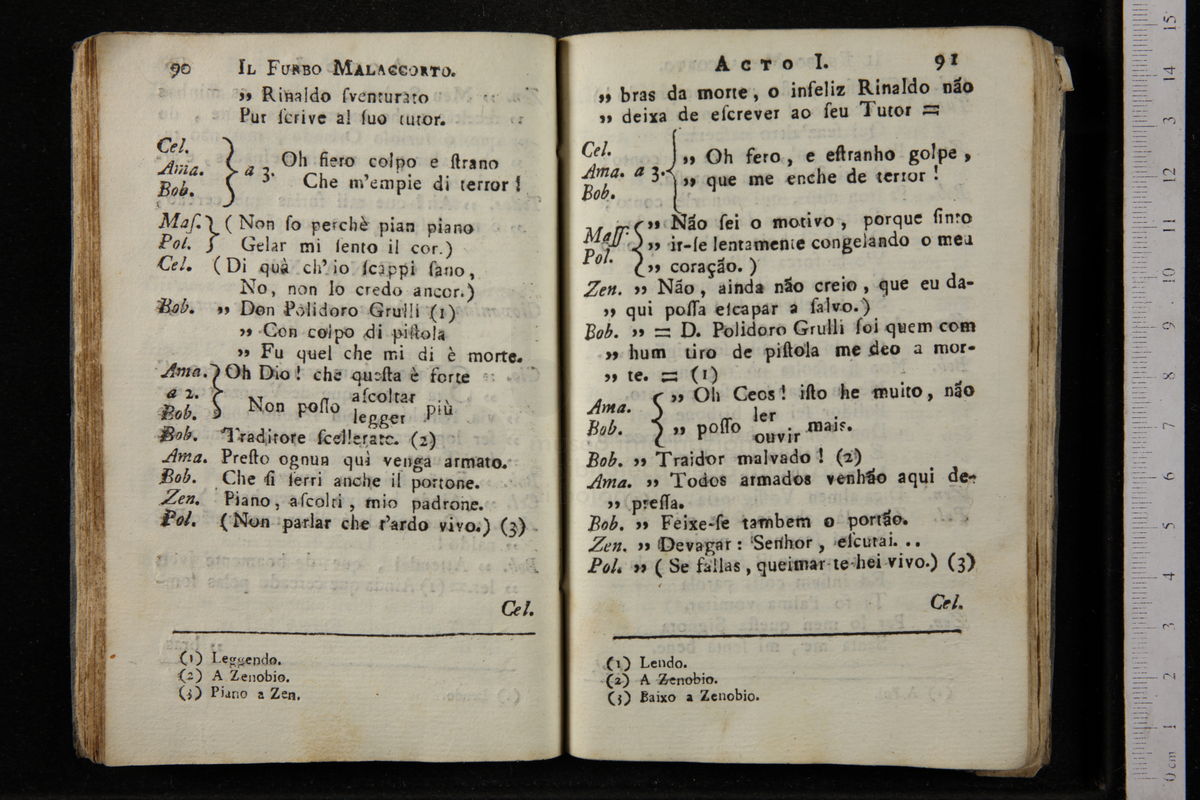 90 IL FURBO MALACCORTO.
„ Rinaldo ſventurato
Pur ſcrive al ſuo tutor.
Cel.
Ama. a 3. Oh fiero colpo e ſtrano
Bob. Che m'empie di terror!
Maſ. (Non ſo perchè pian piano
Pol. Gelar mi ſento il cor.)
Cel. (Di quà ch'io ſcappi ſano,
No, non lo credo ancor.)
Bob. „ Don Polidoro Grulli (1)
„ Con colpo di piſtola
„ Fu quel che mi di è morte.
Ama. Oh Dio! che queſta è forte
a 2. Non poſſo aſcoltar più
Bob. legger
Bob. Traditore ſcellerate. (2)
Ama. Preſto ognun quì venga armato.
Bob. Che ſi ſerri anche il portone.
Zen. Piano, aſcolti, mio padrone.
Pol. (Non parlar che t'ardo vivo.) (3)
Cel.
(1) Leggendo.
(2) A Zenobio.
(3) Piano a Zen.
ACTO I. 91
„ bras da morte, o infeliz Rinaldo não
„ deixa de eſcrever ao ſeu Tutor =
Cel.
Ama. a 3. „ Oh fero, e eſtranho golpe,
Bob. „ que me enche de terror!
„ Não ſei o motivo, porque ſinto
Maſſ. „ ir-ſe lentamente congelando o meu
Pol. „ coração.)
Zen. „ Não, ainda não creio, que eu da-
„ qui poſſa eſcapar a ſalvo.)
Bob. „ = D. Polidoro Grulli foi quem com
„ hum tiro de piſtola me deo a mor-
„ te. = (1)
Ama. „ Oh Ceos! iſto he muito, não
Bob. „ poſſo ler mais.
ouvir
Bob. „ Traidor malvado! (2)
Ama. „ Todos armados venhão aqui de-
„ preſſa.
Bob. „ Feixe-ſe tambem o portão.
Zen. „ Devagar: Senhor, eſcutai...
Pol. „ (Se fallas, queimar-te-hei vivo.) (3)
Cel.
(1) Lendo.
(2) A Zenobio.
(3) Baixo a Zenobio.
0 cm 1 2 3 4 5 6 7 8 9 10 11 12 13 14 15